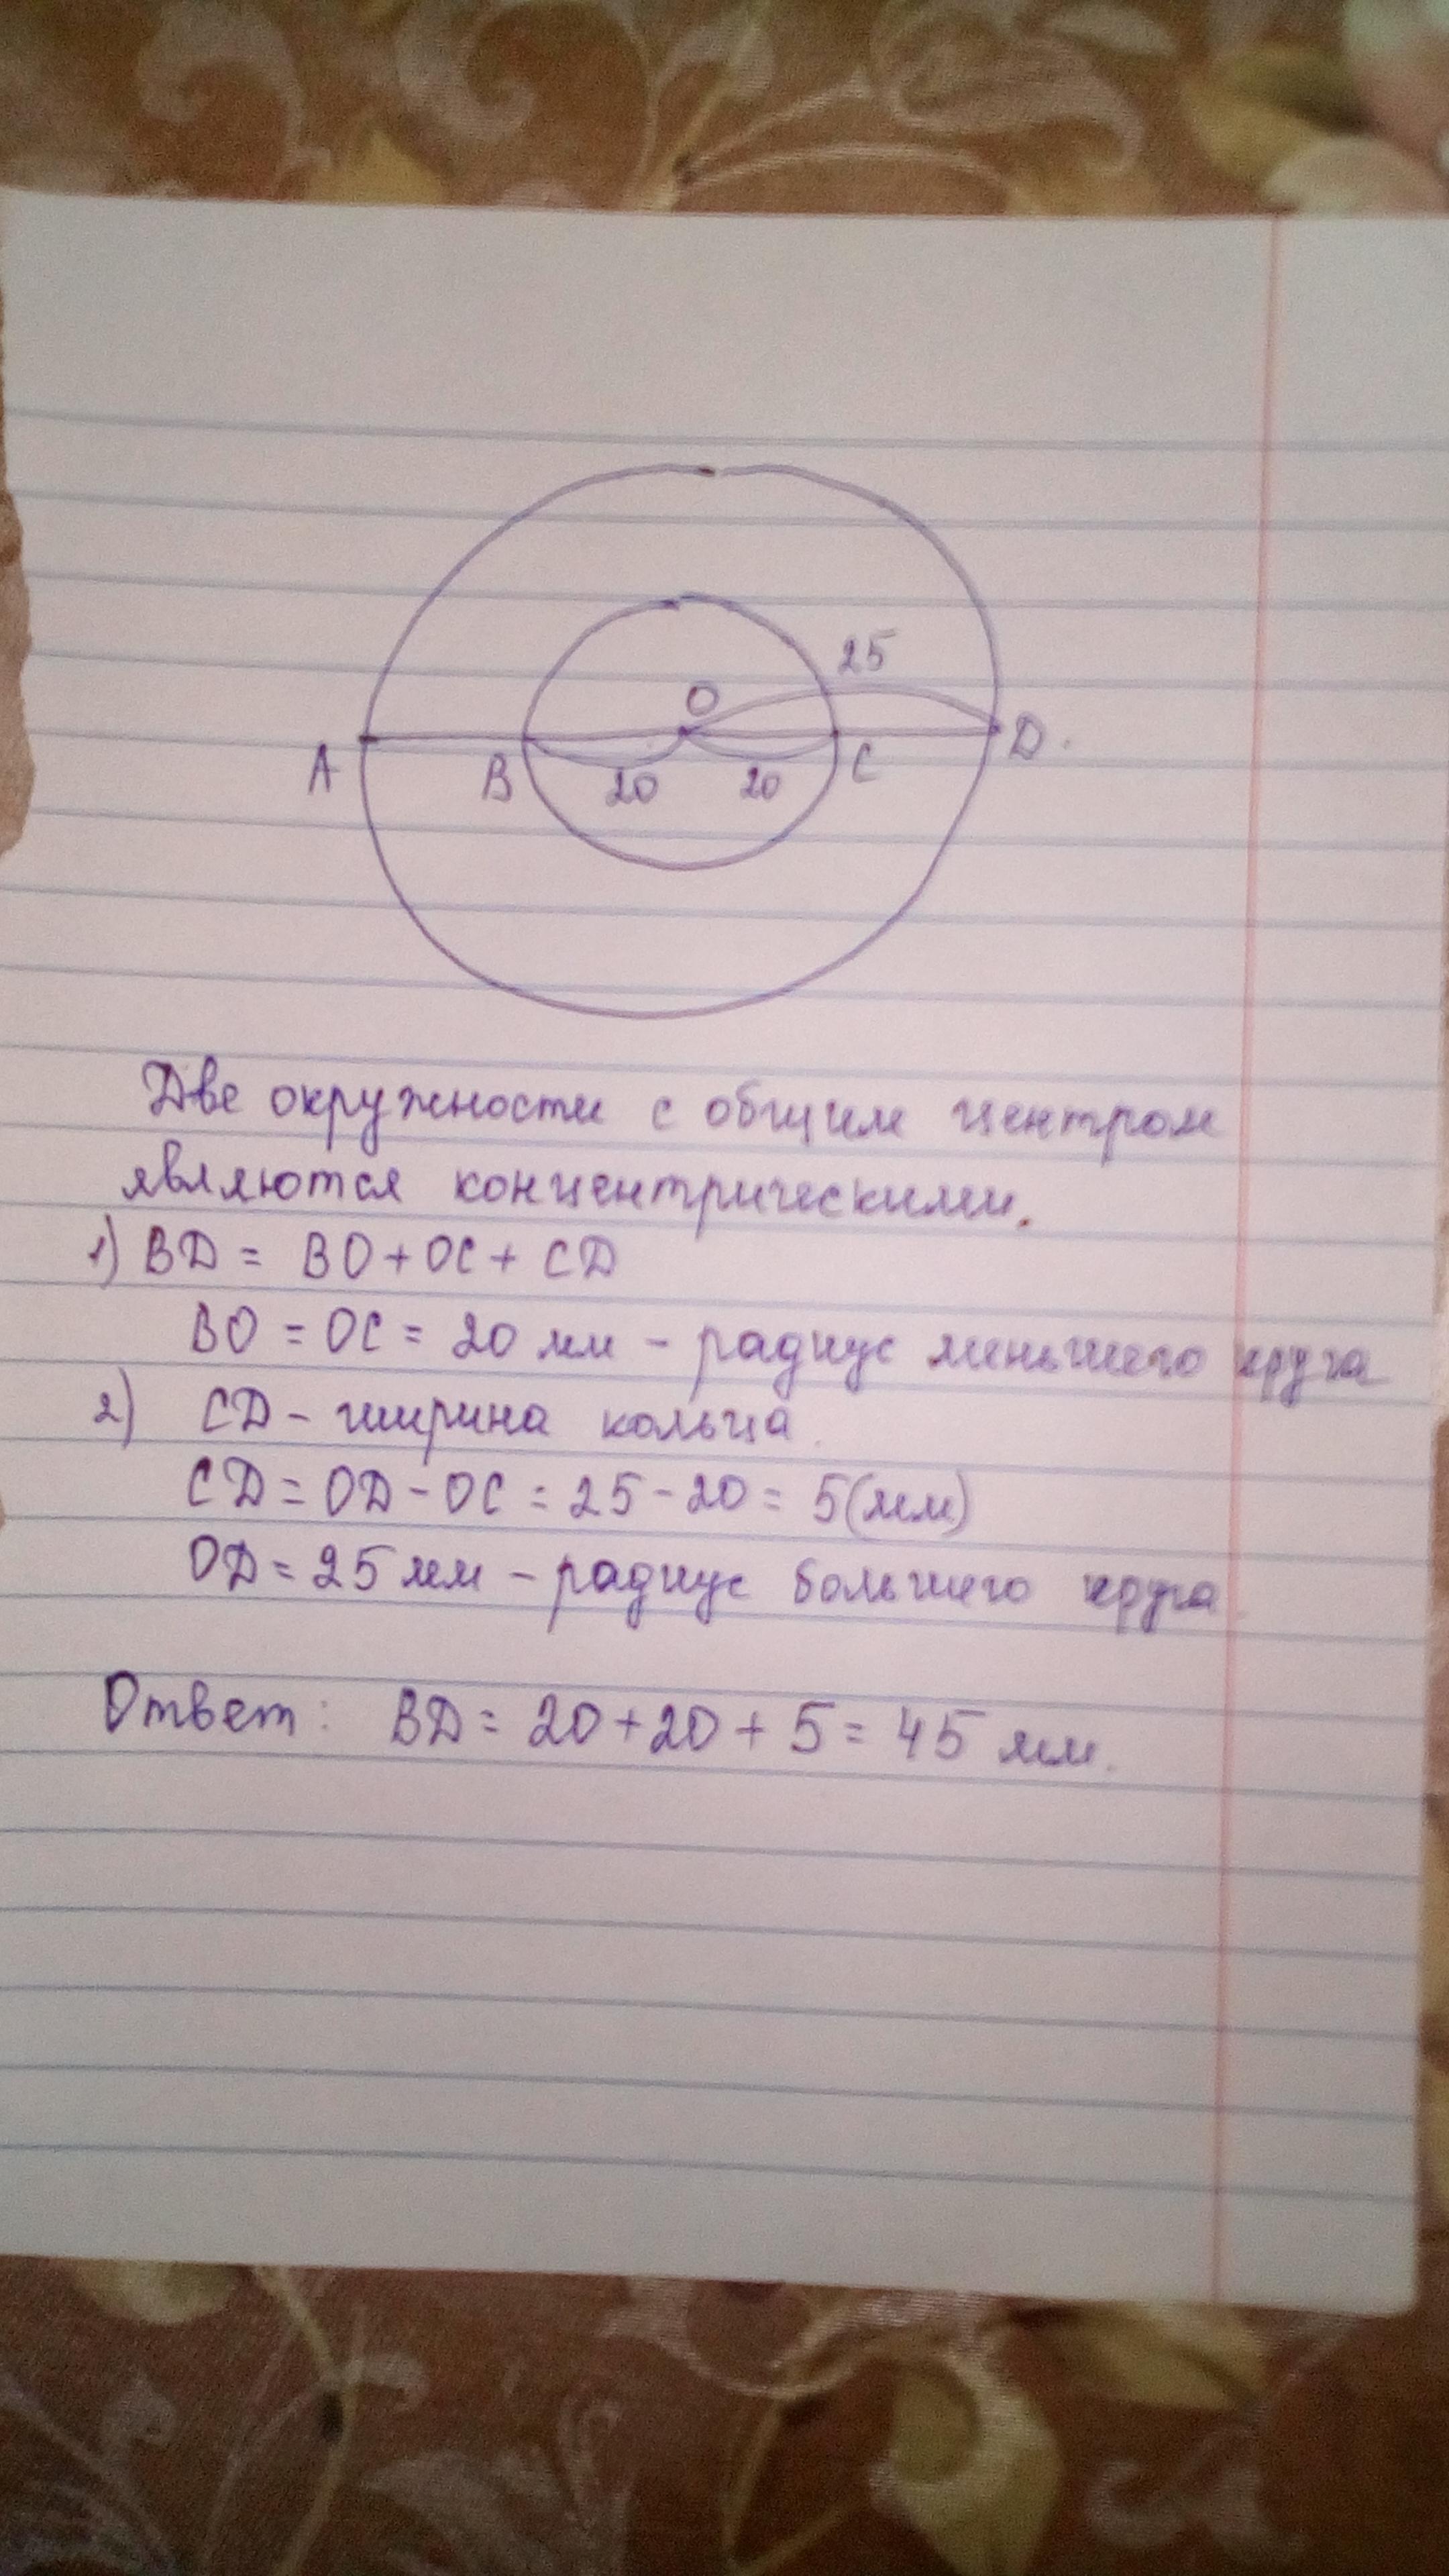 25
O
A B 20 20 C D
Две окружности с общим центром
являются концентрическими.
1) BD = BO + OC + CD
BO = OC = 20 мм - радиус меньшего круга
2) CD - ширина кольца.
CD = OD - OC = 25 - 20 = 5(мм)
OD = 25 мм - радиус большего круга
Ответ: BD = 20 + 20 + 5 = 45 мм.